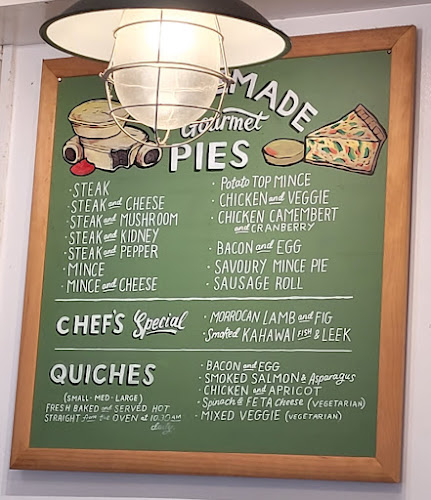 MADE
Gourmet
PIES
· STEAK
· STEAK and CHEESE
· STEAK and MUSHROOM
· STEAK and KIDNEY
· STEAK and PEPPER
· MINCE
· MINCE and CHEESE
· Potato TOP MINCE
· CHICKEN and VEGGIE
· CHICKEN CAMEMBERT
and CRANBERRY
· BACON and EGG
· SAVOURY MINCE PIE
· SAUSAGE ROLL
CHEF'S Special
· MORROCAN LAMB and FIG
· Smoked KAHAWAI FISH & LEEK
QUICHES
(SMALL - MED - LARGE)
FRESH BAKED and SERVED HOT
STRAIGHT from the OVEN at 10.30 AM
daily
· BACON and EGG
· SMOKED SALMON & Asparagus
· CHICKEN and APRICOT
· Spinach & FETA Cheese (VEGETARIAN)
· MIXED VEGGIE (VEGETARIAN)